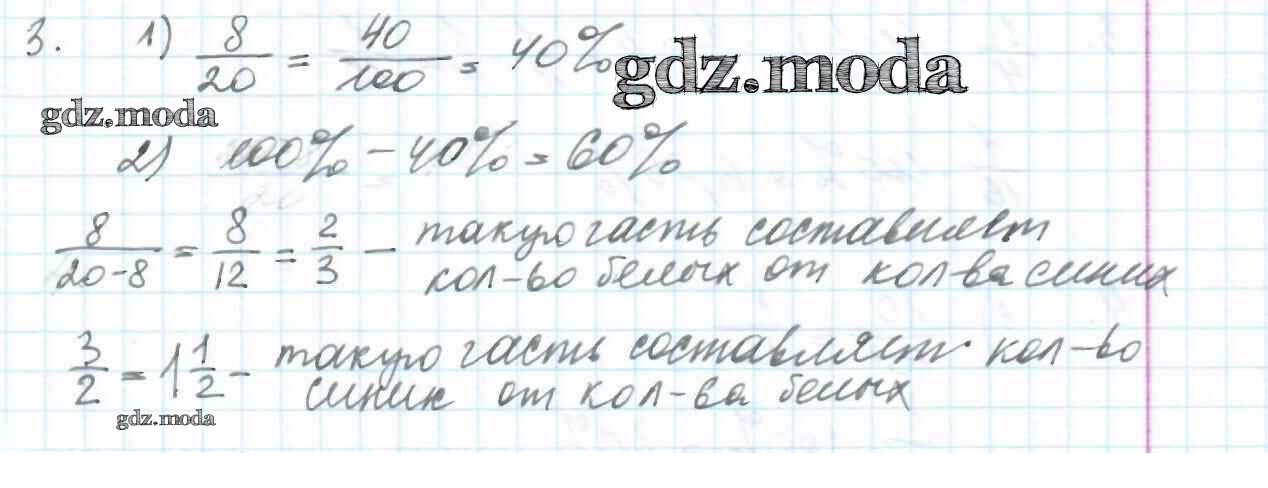 3. 1) 8/20 = 40/100 = 40% gdz.moda
gdz.moda
2) 100% - 40% = 60%
8/20-8 = 8/12 = 2/3 - такую часть составляет
кол-во белых от кол-ва синих
3/2 = 1 1/2 - такую часть составляет кол-во
синих от кол-ва белых
gdz.moda